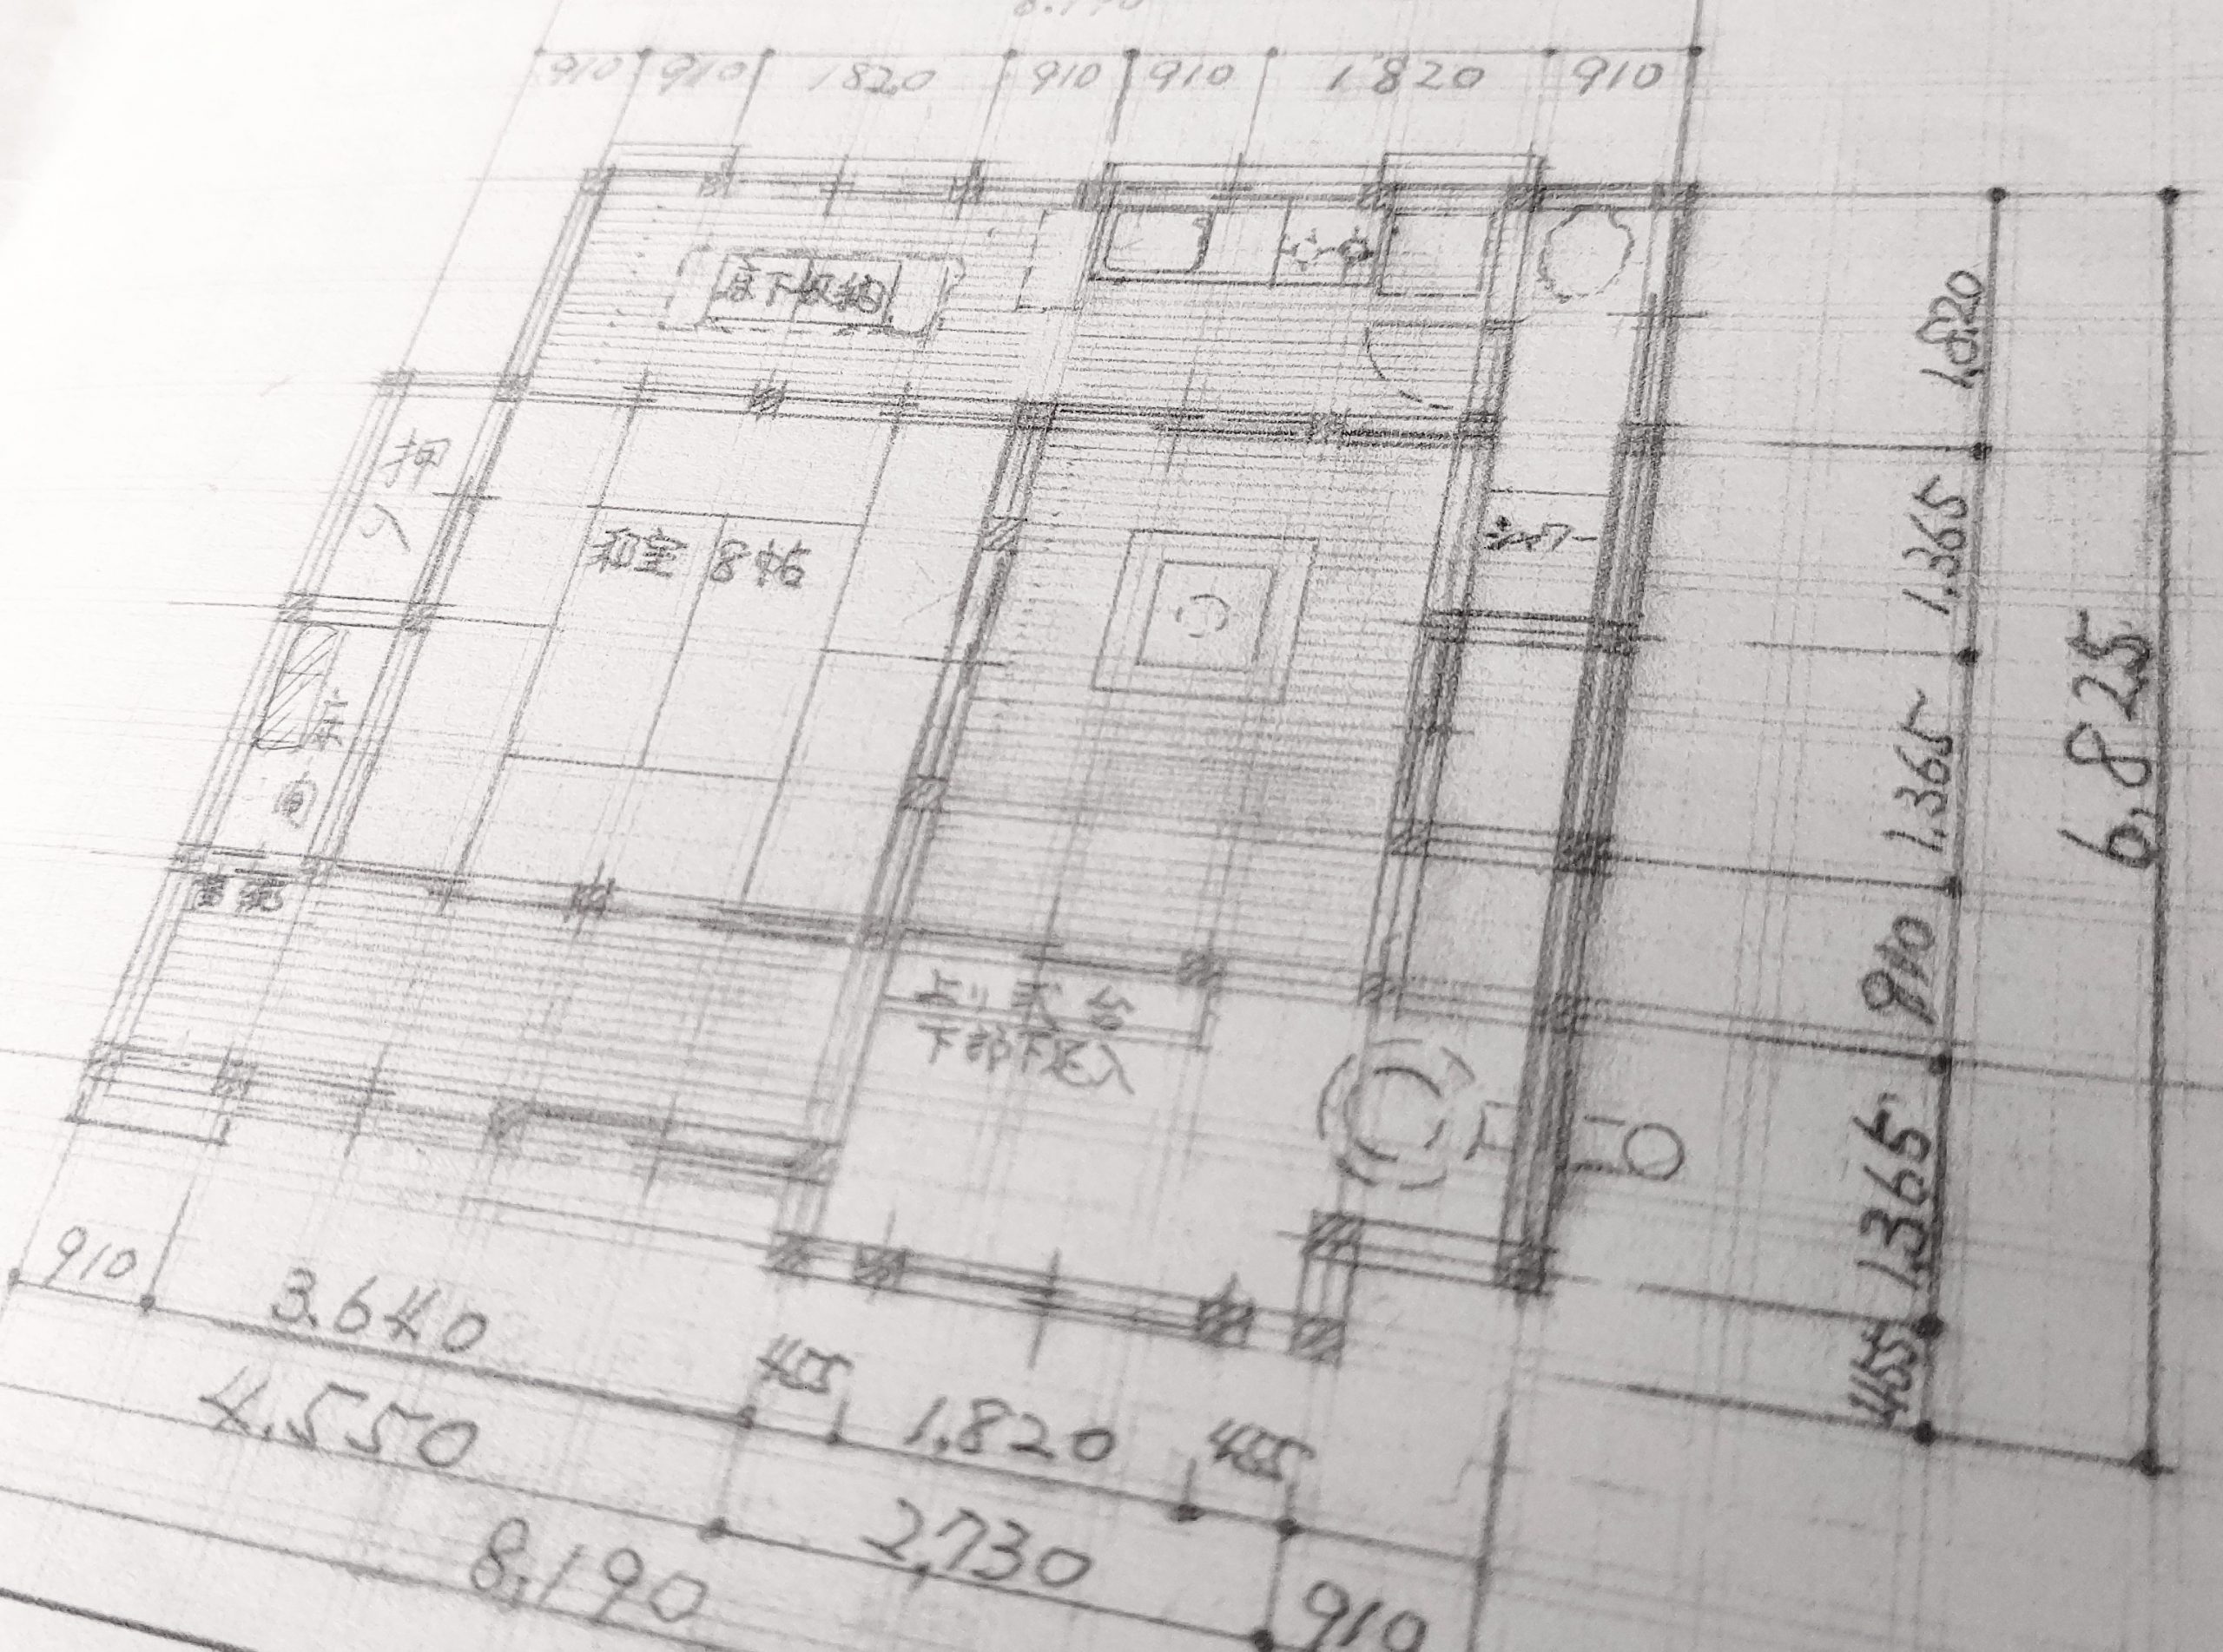 910 910 1820 910 910 1820 910
床下収納
押入
和室 8帖
シャワー
床の間
上り式台
下部下足入
1,820
1.365
1.365
910
1.365
455
6,825
910
3.640
455
1,820
455
4.550
2,730
910
8,190